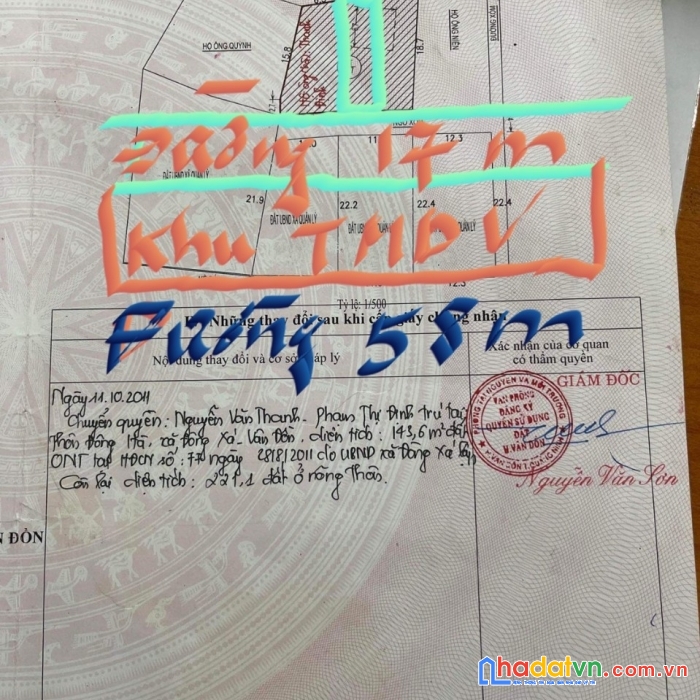 HỘ ÔNG QUỲNH
15.8
18.7
HỘ ÔNG NIÊN
ĐƯỜNG XÓM
Đường 17 m
12.3
ĐẤT UBND XÃ QUẢN LÝ
21.9
22.2
22.4
22.4
ĐẤT UBND XÃ QUẢN LÝ
Khu TMDV
12.3
Tỷ lệ: 1/500
Đường 58m
Những thay đổi sau khi cấp giấy chứng nhận
Nội dung thay đổi và cơ sở pháp lý
Xác nhận của cơ quan
có thẩm quyền
Ngày 11.10.2011
Chuyển quyền: Nguyễn Văn Thanh - Phạm Thị Đinh trú tại
Thôn Đông Hà, xã Đông Xá. Vân Đồn. diện tích: 143,6 m² đất
ONT tại HĐCN số: 77 ngày 28/8/2011 do UBND xã Đông Xá lập
Còn lại diện tích: 221,1 đất ở nông thôn.
GIÁM ĐỐC
PHÒNG TÀI NGUYÊN VÀ MÔI TRƯỜNG
VĂN PHÒNG
ĐĂNG KÝ
QUYỀN SỬ DỤNG
ĐẤT
H. VÂN ĐỒN
H. VÂN ĐỒN T. QUẢNG NINH
Nguyễn Văn Sơn
N ĐỒN
nhadatvn.com.vn